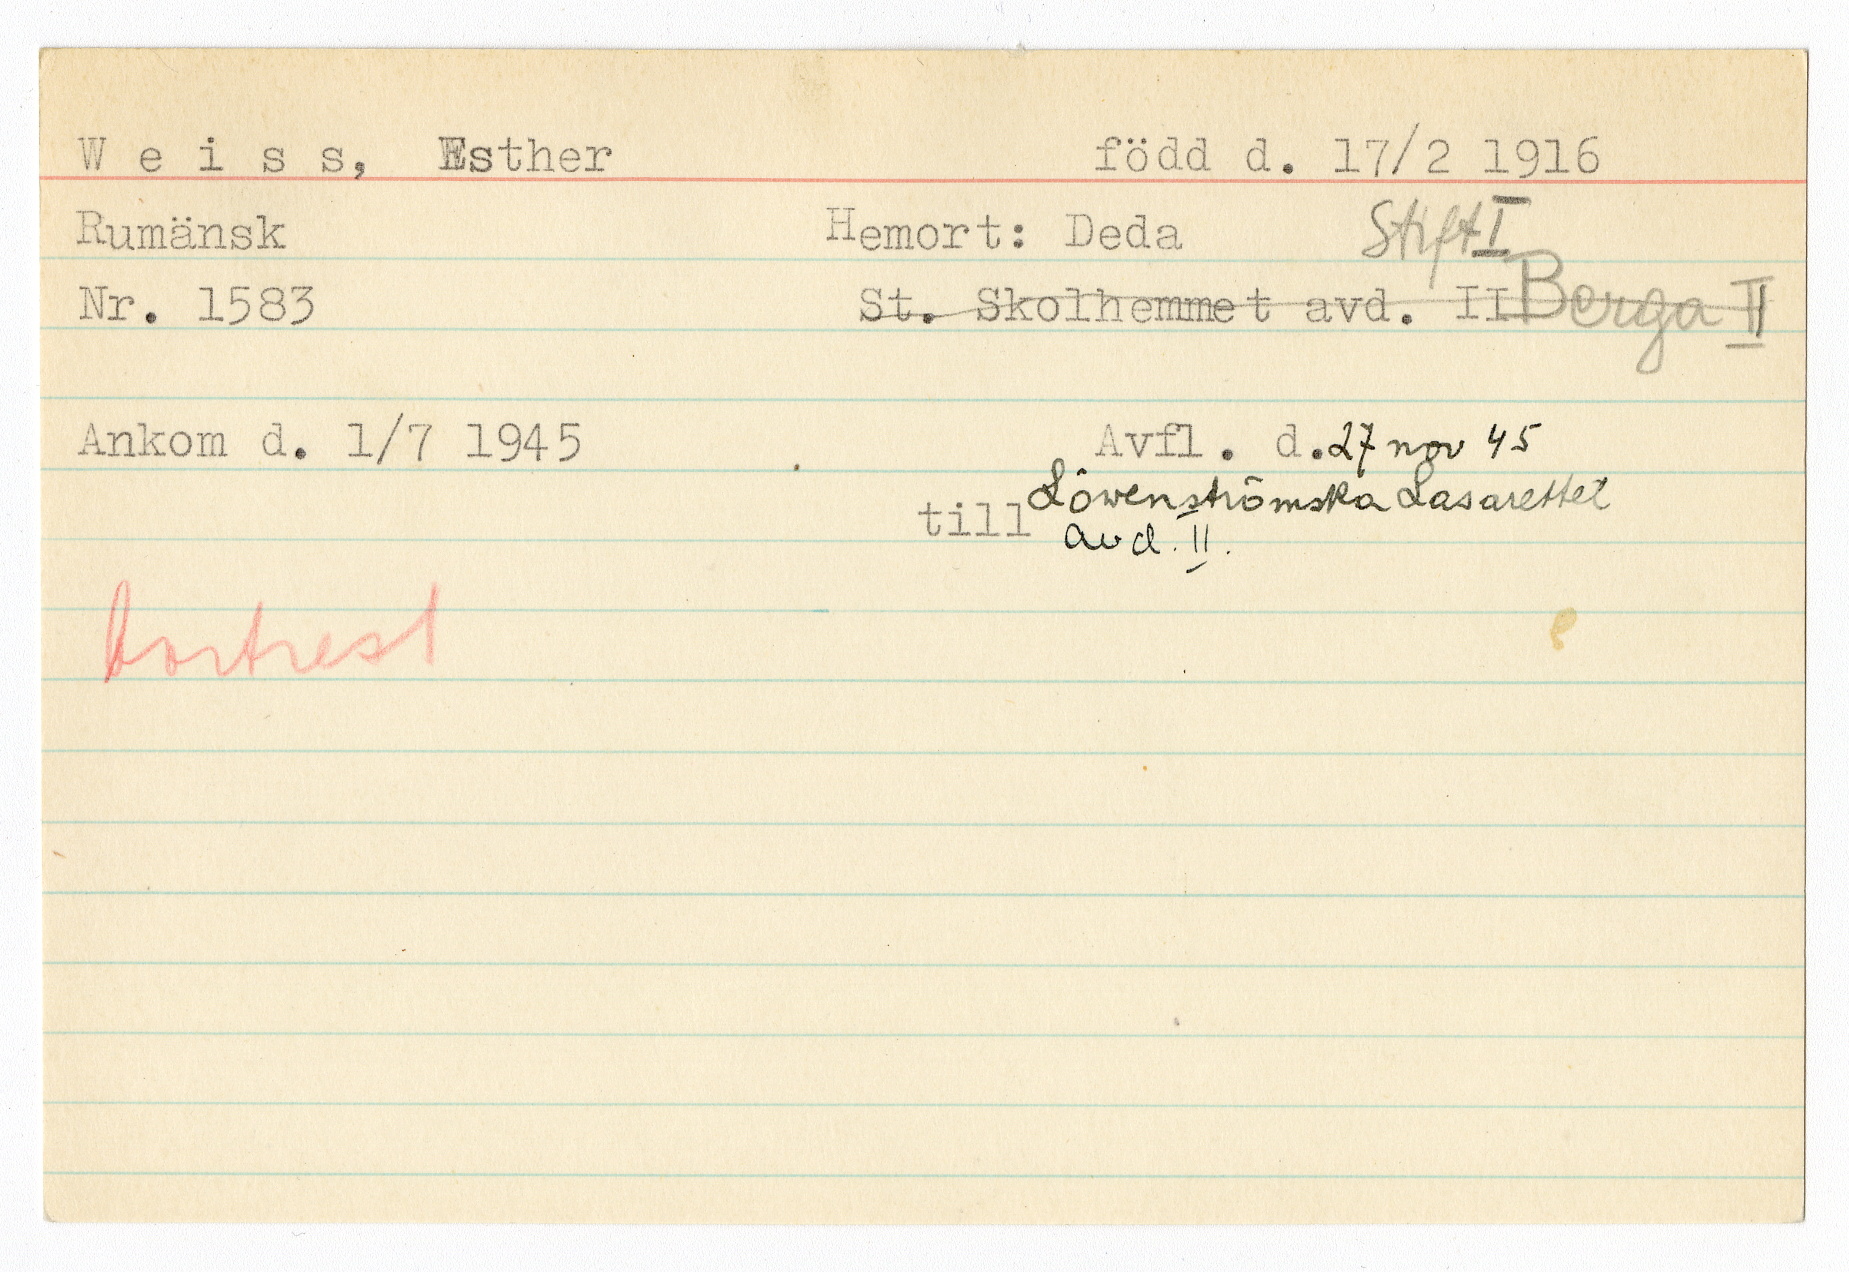 W e i s s, Esther född d. 17/2 1916
Rumänsk Hemort: Deda Stift I
Nr. 1583 St. Skolhemmet avd. II Berga II
Ankom d. 1/7 1945 Avfl. d. 27 nov 45
till Löwenströmska Lasarettet
avd. II.
bortrest